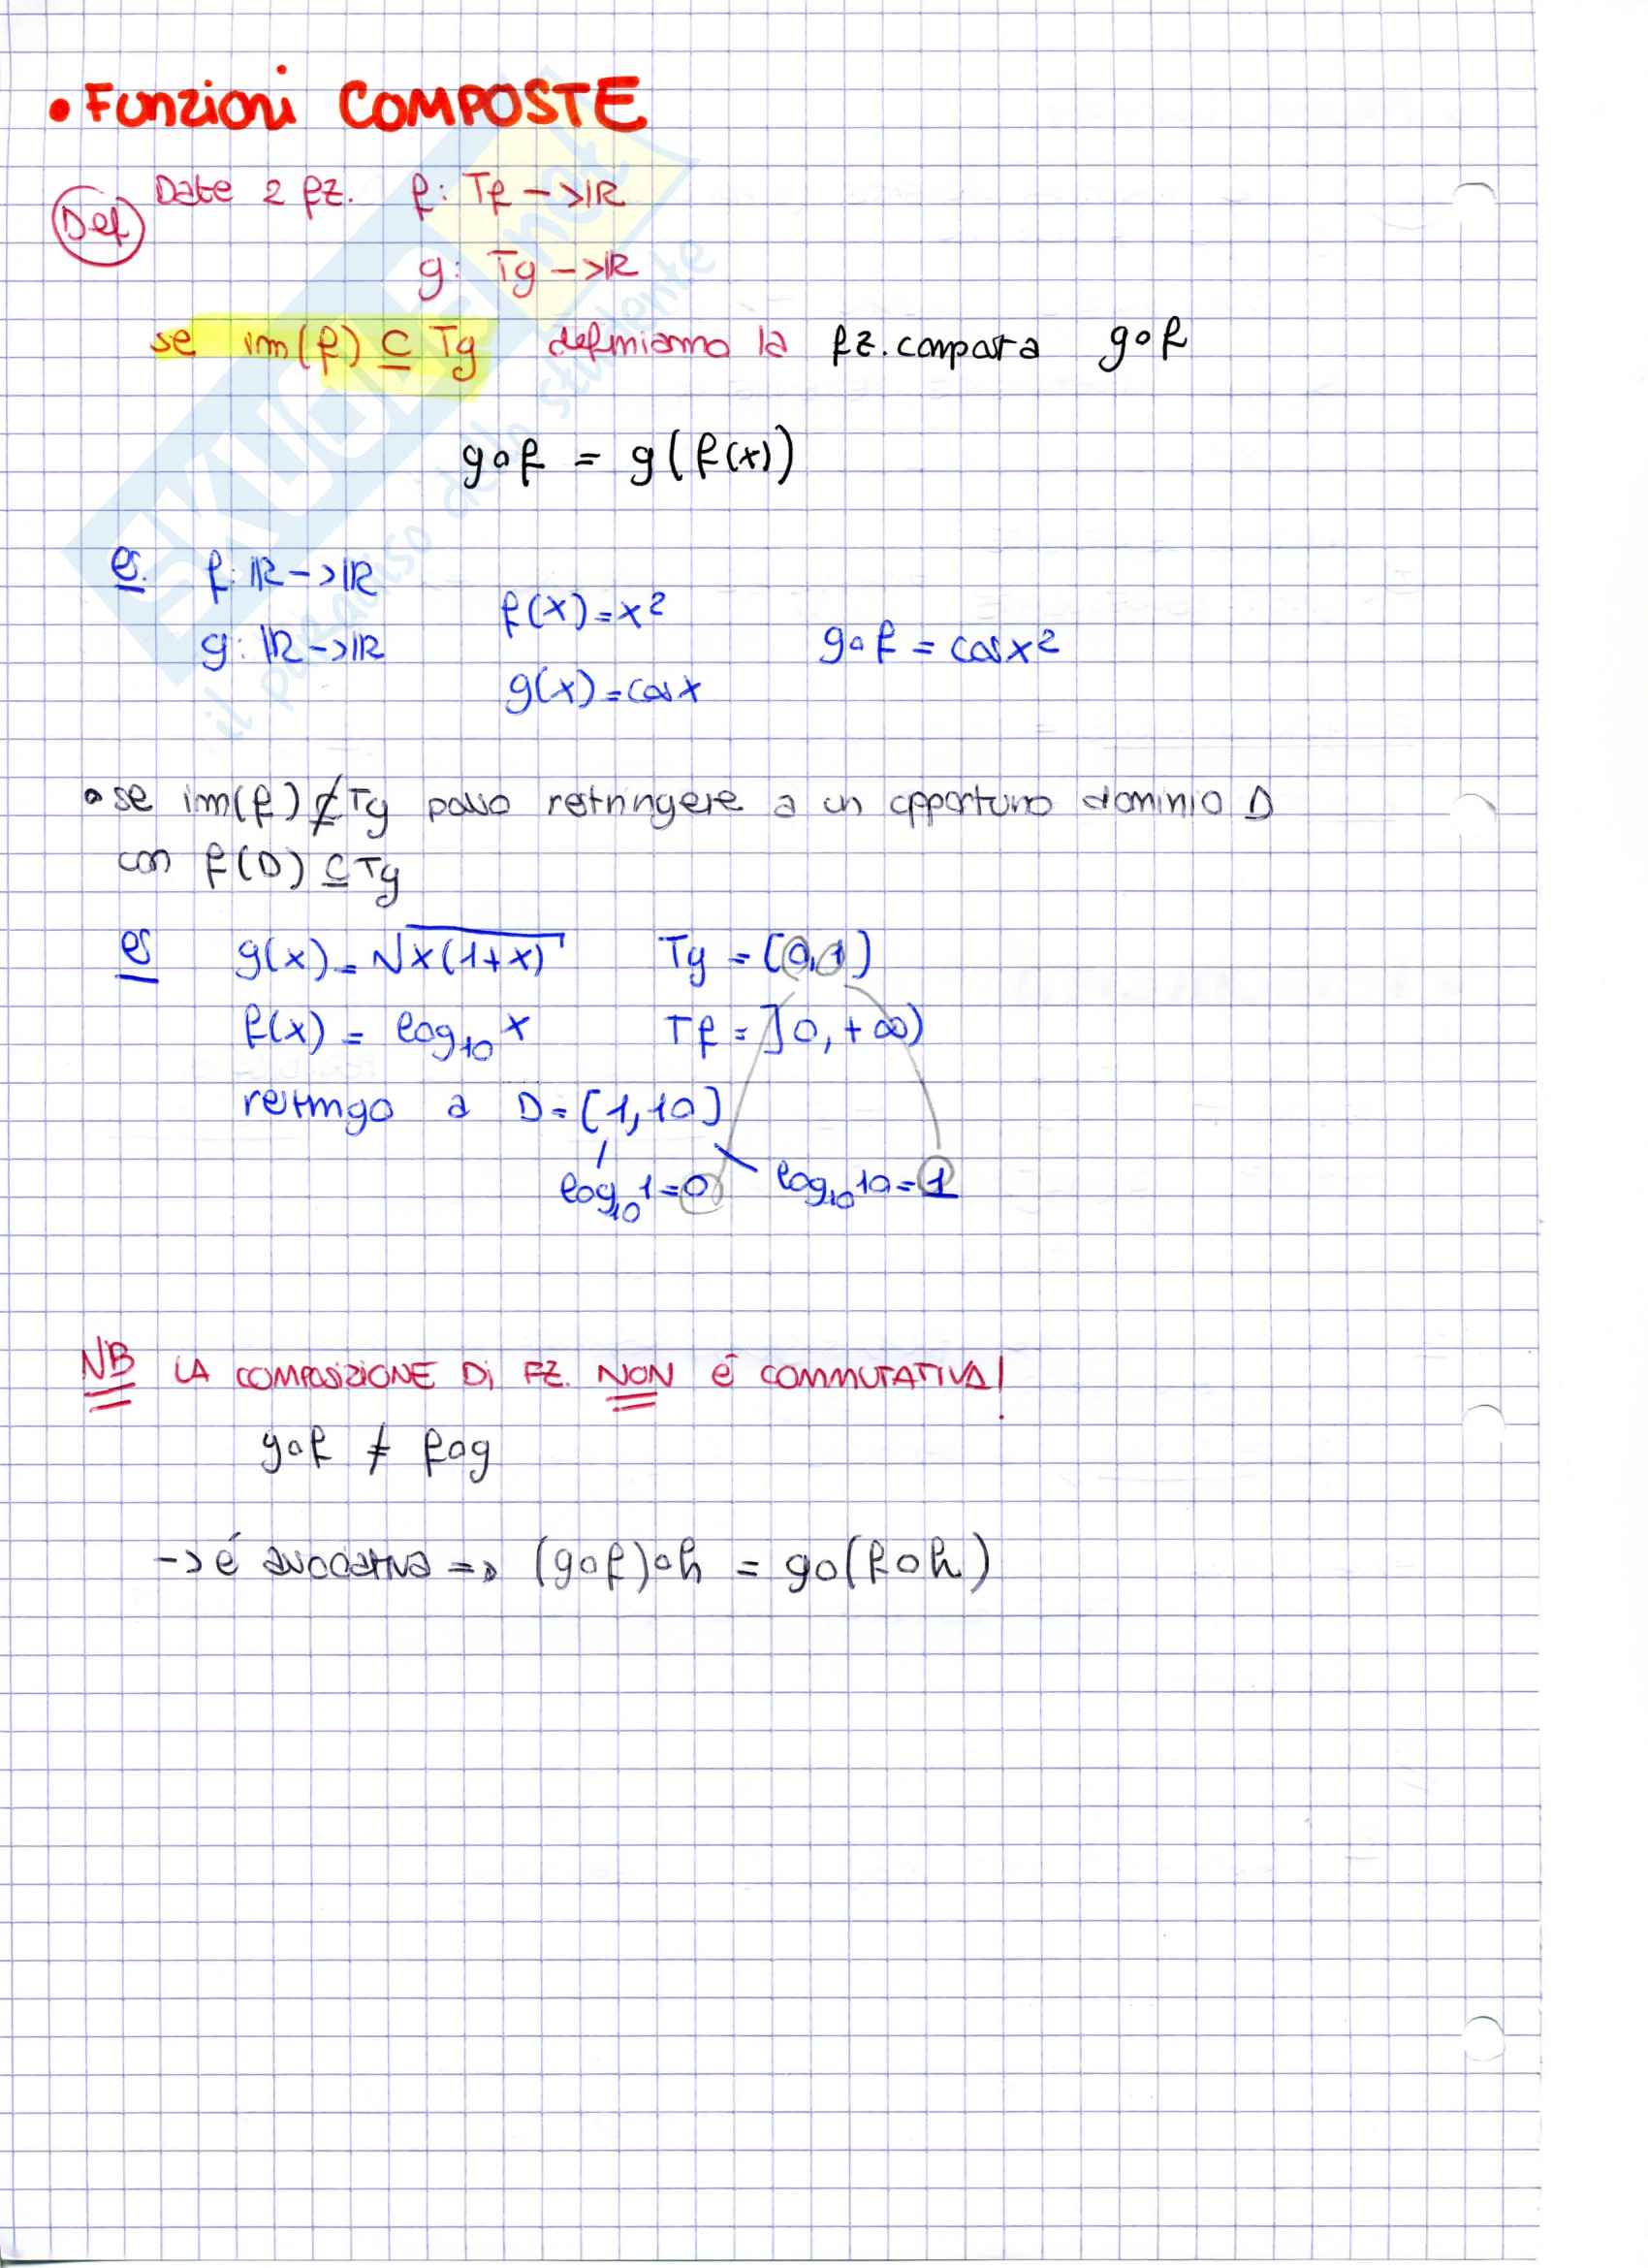 • Funzioni COMPOSTE
Def Date 2 fz. f: Tf -> ℝ
g: Tg -> ℝ
se im(f) ⊆ Tg definiamo la fz. composta g∘f
g∘f = g(f(x))
es. f: ℝ -> ℝ
f(x) = x²
g: ℝ -> ℝ
g∘f = cos x²
g(x) = cos x
• se im(f) ⊈ Tg posso restringere a un opportuno dominio D
con f(D) ⊆ Tg
es g(x) = √x(1+x) Tg = [0,1]
f(x) = log₁₀ x Tf = ]0, +∞)
restringo a D = [1,10]
log₁₀ 1 = 0 log₁₀ 10 = 1
NB LA COMPOSIZIONE Di FZ. NON é COMMUTATIVA!
g∘f ≠ f∘g
-> é associativa => (g∘f)∘h = g∘(f∘h)
SKUOLA.net
il paradiso dello studente